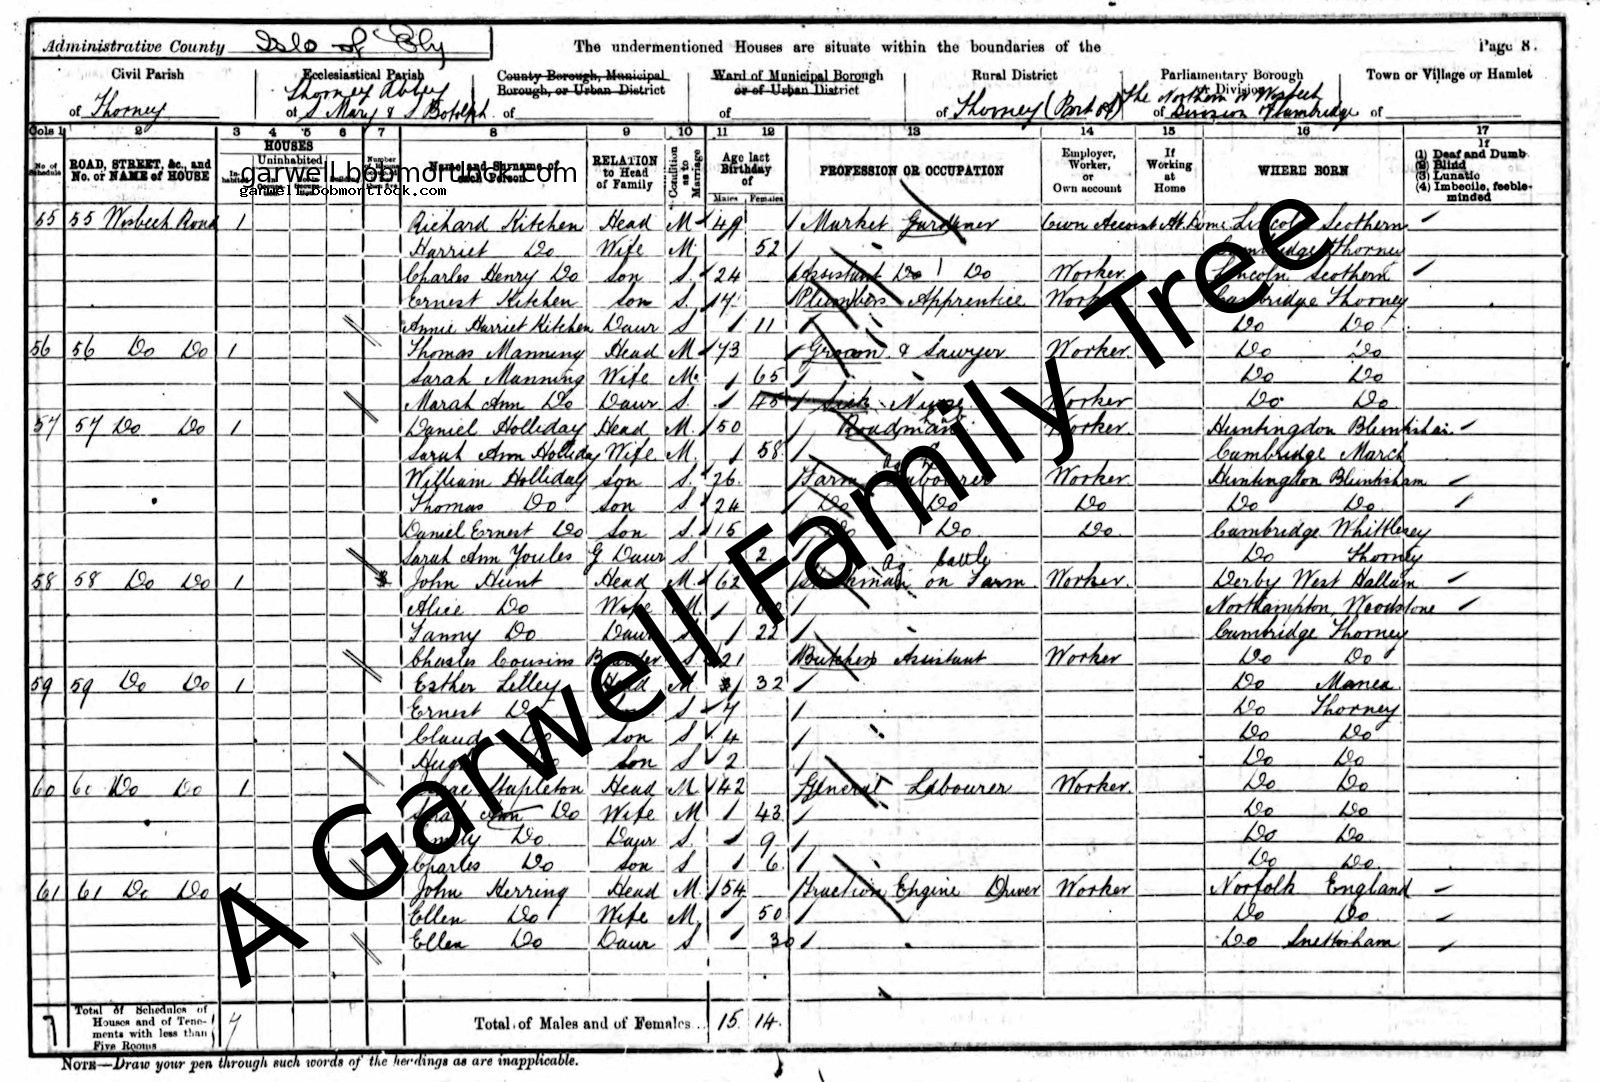 Administrative County Isle of Ely The undermentioned Houses are situate within the boundaries of the Page 8.
Civil Parish Ecclesiastical Parish County Borough, Municipal Borough, or Urban District Ward of Municipal Borough or of Urban District Rural District Parliamentary Borough or Division Town or Village or Hamlet
of Thorney of Thorney Abbey S Mary & S Botolph of of of Thorney (Part of) of The Northern or Wisbech Division of Cambridge of
Cols 1 2 3 4 5 6 7 8 9 10 11 12 13 14 15 16 17
No. of Schedule ROAD, STREET, &c., and No. or NAME of HOUSE HOUSES Uninhabited Name and Surname of each Person RELATION to Head of Family Condition as to Marriage Age last Birthday of Males Females PROFESSION OR OCCUPATION Employer, Worker, or Own account If Working at Home WHERE BORN If (1) Deaf and Dumb (2) Blind (3) Lunatic (4) Imbecile, feeble-minded
garwell.bobmortlock.com
garwell.bobmortlock.com
55 55 Wisbech Road 1 Richard Kitchen Head M 49 Market Gardener Own Account At Home Lincoln Scothern
Harriet Do Wife M 52 Cambridge Thorney
Charles Henry Do Son S. 24 Assistant Do Do Worker Lincoln Scothern
Ernest Kitchen Son S. 17 Plumbers Apprentice Worker Cambridge Thorney
Annie Harriet Kitchen Daur S 11 Do Do
56 56 Do Do 1 Thomas Manning Head M 73 Groom & Sawyer Worker Do Do
Sarah Manning Wife M. 65 Do Do
Marah Ann Do Daur S. 45 Sick Nurse Worker Do Do
57 57 Do Do 1 Daniel Holliday Head M. 50 Roadman Worker Huntingdon Bluntisham
Sarah Ann Holliday Wife M. 58 Cambridge March
William Holliday Son S. 26 Farm Labourer Worker Huntingdon Bluntisham
Thomas Do Son S 24 Do Do Do Do Do
Daniel Ernest Do Son S 15 Do Do Do Cambridge Whittlesey
Sarah Ann Youles G Daur S 2 Do Thorney
58 58 Do Do 1 John Hunt Head M. 62 Stockman on Farm Ag. Cattle Worker Derby West Hallam
Alice Do Wife M. Northampton, Woodstone
Fanny Do Daur S 22 Cambridge Thorney
Charles Cousins Boarder S 21 Butchers Assistant Worker Do Do
59 59 Do Do 1 Esther Lilley Head M 32 Do Manea
Ernest Do Son S 7 Do Thorney
Claud Do Son S 4 Do Do
Hugh Do Son S 2 Do Do
60 60 Do Do 1 Stapleton Head M 42 General Labourer Worker Do Do
Sarah Ann Do Wife M 43 Do Do
Emily Do Daur S 9 Do Do
Charles Do Son S 6 Do Do
61 61 Do Do 1 John Herring Head M 54 Traction Engine Driver Worker Norfolk England
Ellen Do Wife M 50 Do Do
Ellen Do Daur S 30 Do Snettisham
7 Total of Schedules of Houses and of Tenements with less than Five Rooms 7 Total of Males and of Females... 15 14
NOTE—Draw your pen through such words of the headings as are inapplicable.
A Garwell Family Tree